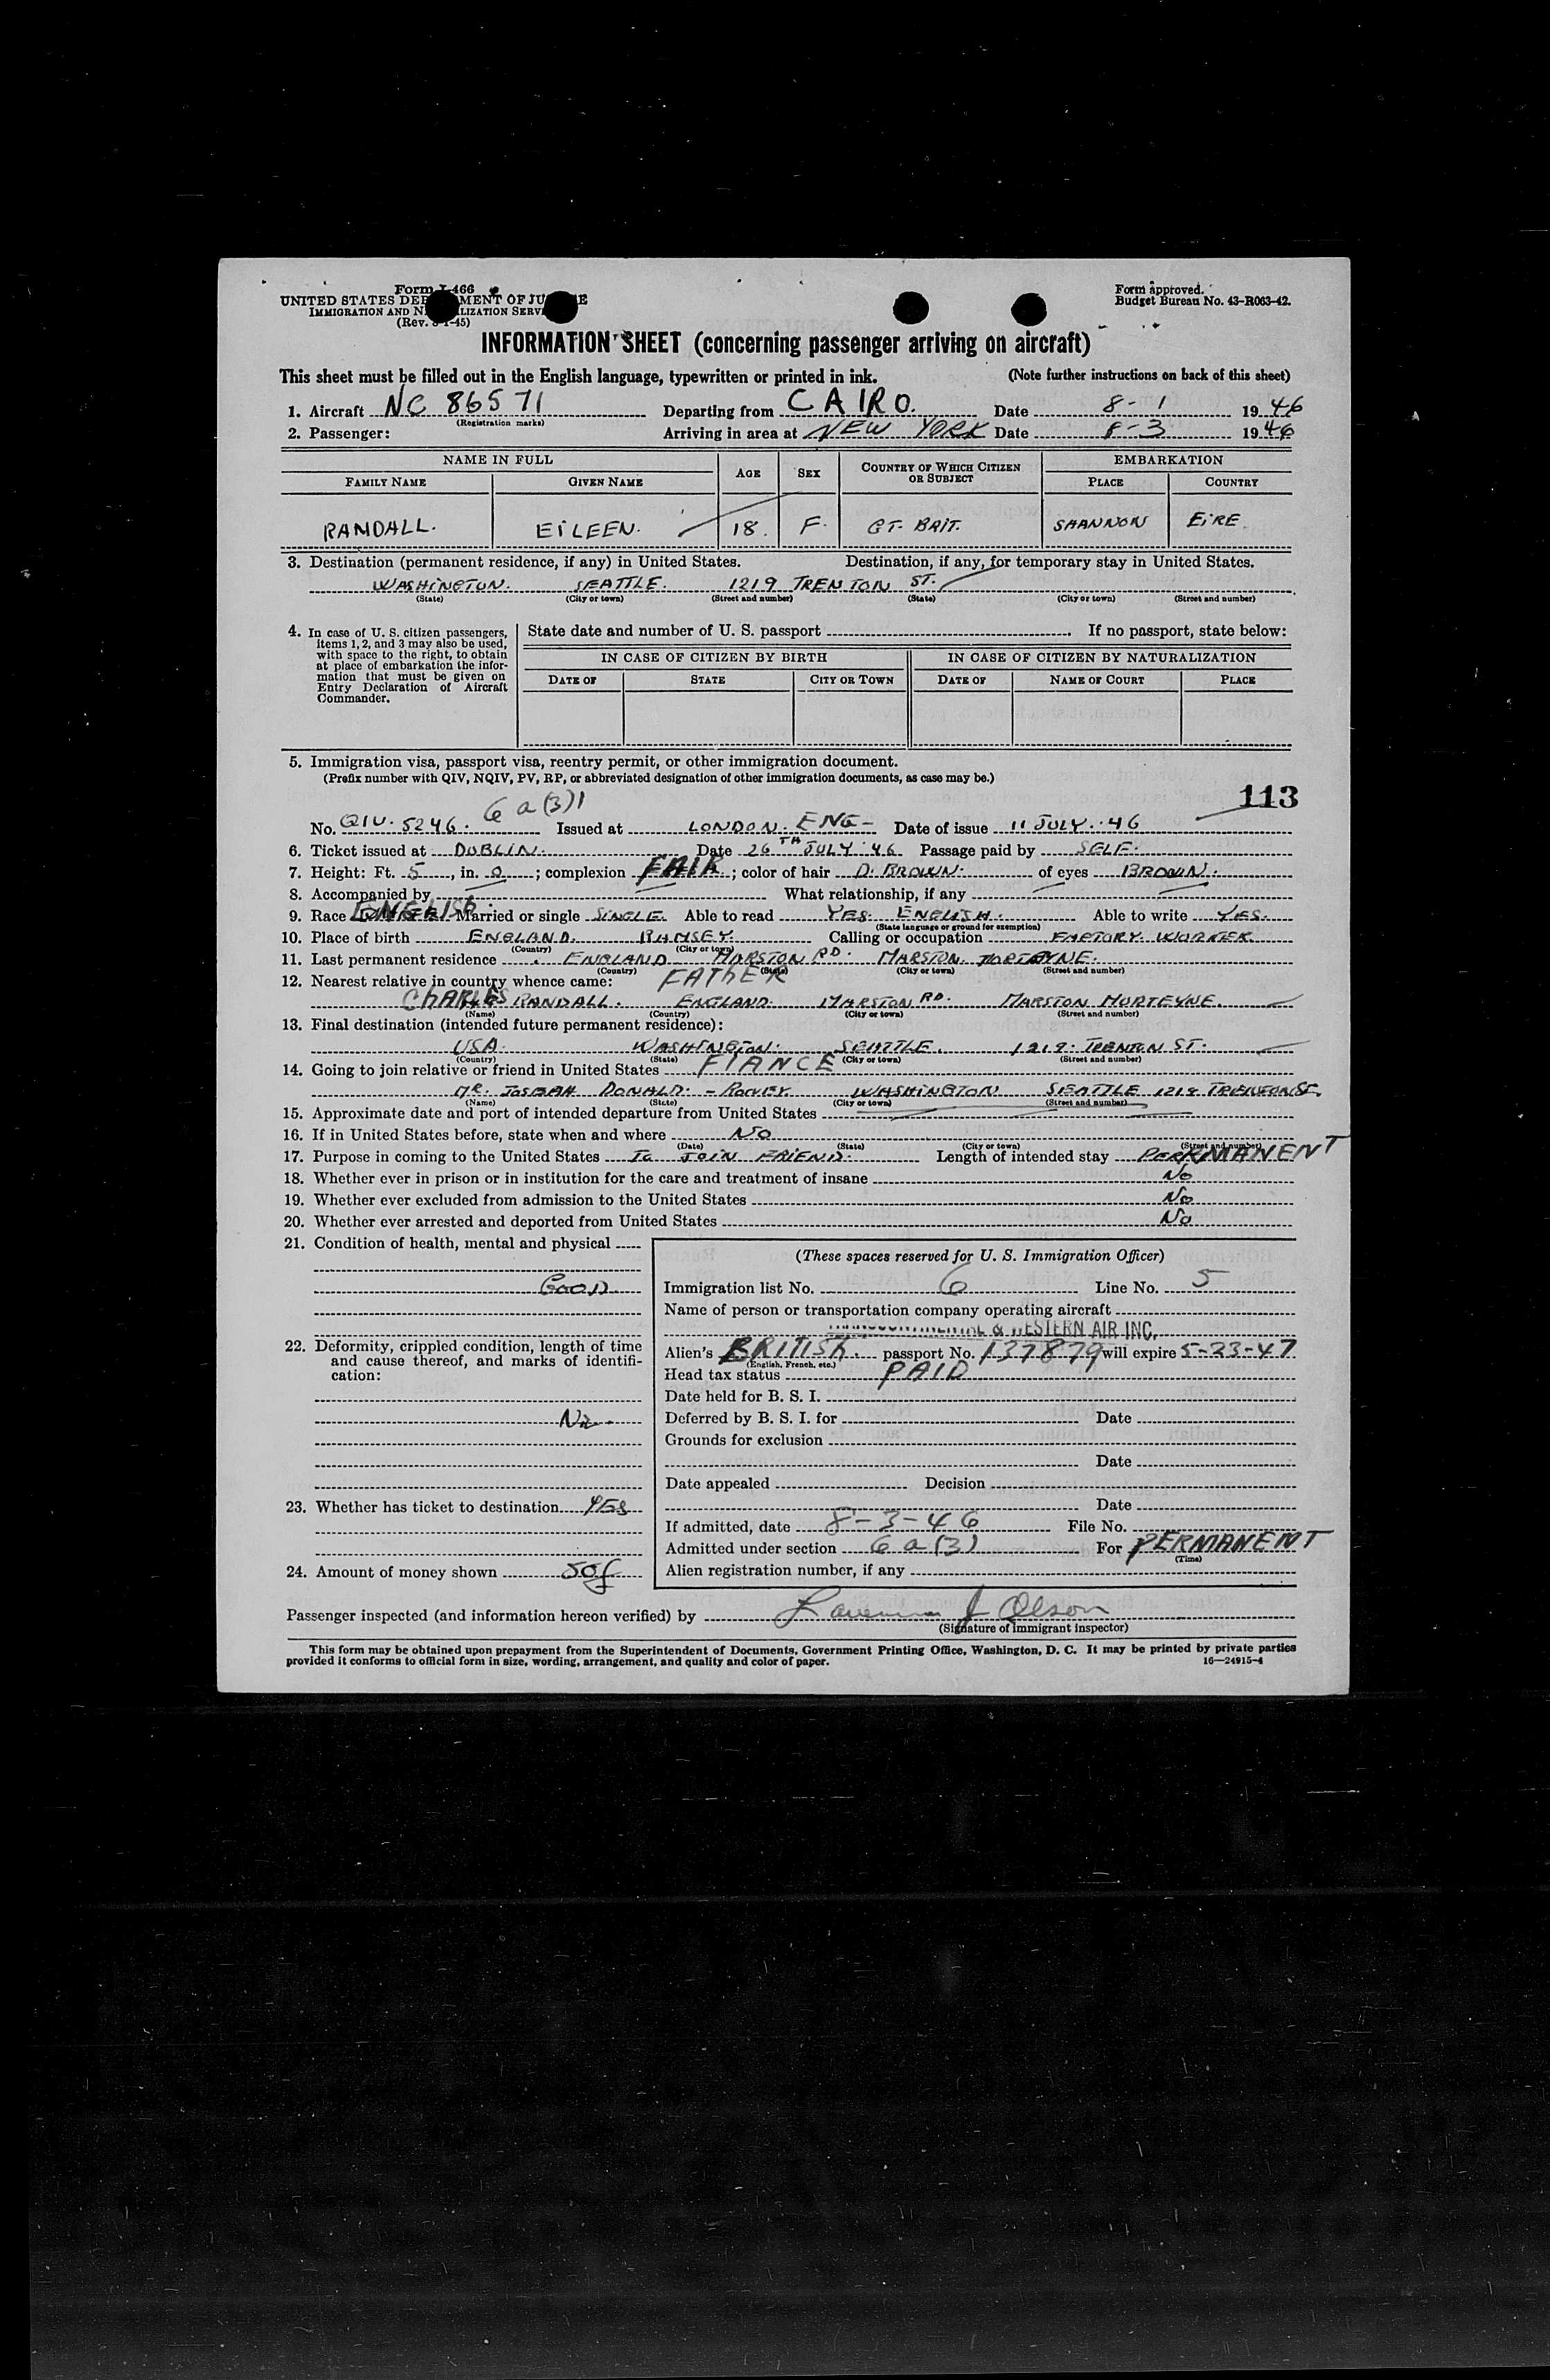 Form I-466
UNITED STATES DEPARTMENT OF JUSTICE
IMMIGRATION AND NATURALIZATION SERVICE
(Rev. 45)
Form approved.
Budget Bureau No. 43-R063-42.
INFORMATION SHEET (concerning passenger arriving on aircraft)
This sheet must be filled out in the English language, typewritten or printed in ink. (Note further instructions on back of this sheet)
1. Aircraft NC 86571 Departing from CAIRO. Date 8-1 1946
(Registration marks)
2. Passenger: Arriving in area at NEW YORK Date 8-3 1946
NAME IN FULL AGE SEX COUNTRY OF WHICH CITIZEN OR SUBJECT EMBARKATION
FAMILY NAME GIVEN NAME PLACE COUNTRY
RANDALL. EILEEN. 18. F. GT. BRIT. SHANNON EIRE.
3. Destination (permanent residence, if any) in United States. Destination, if any, for temporary stay in United States.
WASHINGTON. SEATTLE. 1219 TRENTON ST.
(State) (City or town) (Street and number) (State) (City or town) (Street and number)
4. In case of U. S. citizen passengers, items 1, 2, and 3 may also be used, with space to the right, to obtain at place of embarkation the information that must be given on Entry Declaration of Aircraft Commander.
State date and number of U. S. passport If no passport, state below:
IN CASE OF CITIZEN BY BIRTH IN CASE OF CITIZEN BY NATURALIZATION
DATE OF STATE CITY OR TOWN DATE OF NAME OF COURT PLACE
5. Immigration visa, passport visa, reentry permit, or other immigration document.
(Prefix number with QIV, NQIV, PV, RP, or abbreviated designation of other immigration documents, as case may be.)
6 a (3) 1
113
No. QIV. 5246. Issued at LONDON. ENG- Date of issue 11 JULY. 46
6. Ticket issued at DUBLIN. Date 26TH JULY '46 Passage paid by SELF.
7. Height: Ft. 5, in. 0; complexion FAIR; color of hair D. BROWN. of eyes BROWN.
8. Accompanied by What relationship, if any
9. Race ENGLISH. Married or single SINGLE. Able to read YES. ENGLISH. Able to write YES.
(State language or ground for exemption)
10. Place of birth ENGLAND. RAMSEY. Calling or occupation FACTORY. WORKER.
(Country) (City or town)
11. Last permanent residence ENGLAND MARSTON RD. MARSTON. MORTEYNE.
(Country) (State) (City or town) (Street and number)
12. Nearest relative in country whence came: FATHER
CHARLES RANDALL. ENGLAND. MARSTON RD. MARSTON MORTEYNE.
(Name) (Country) (City or town) (Street and number)
13. Final destination (intended future permanent residence):
USA. WASHINGTON. SEATTLE. 1219. TRENTON ST.
(Country) (State) (City or town) (Street and number)
14. Going to join relative or friend in United States FIANCE
MR. DONALD. WASHINGTON SEATTLE 1219 TRENTON ST.
(Name) (State) (City or town) (Street and number)
15. Approximate date and port of intended departure from United States
16. If in United States before, state when and where NO
(Date) (State) (City or town) (Street and number)
17. Purpose in coming to the United States TO JOIN FRIEND. Length of intended stay PERMANENT
18. Whether ever in prison or in institution for the care and treatment of insane No
19. Whether ever excluded from admission to the United States No
20. Whether ever arrested and deported from United States No
21. Condition of health, mental and physical
GOOD
22. Deformity, crippled condition, length of time and cause thereof, and marks of identification:
23. Whether has ticket to destination YES
24. Amount of money shown 50£
(These spaces reserved for U. S. Immigration Officer)
Immigration list No. 6 Line No. 5
Name of person or transportation company operating aircraft
TRANSCONTINENTAL & WESTERN AIR INC.
Alien's BRITISH. passport No. 137879 will expire 5-23-47
(English, French, etc.)
Head tax status PAID
Date held for B. S. I.
Deferred by B. S. I. for Date
Grounds for exclusion
Date
Date appealed Decision
Date
If admitted, date 8-3-46 File No.
Admitted under section 6 a (3) For PERMANENT
(Time)
Alien registration number, if any
Passenger inspected (and information hereon verified) by J Olson
(Signature of immigrant inspector)
This form may be obtained upon prepayment from the Superintendent of Documents, Government Printing Office, Washington, D. C. It may be printed by private parties
provided it conforms to official form in size, wording, arrangement, and quality and color of paper. 16—24915-4